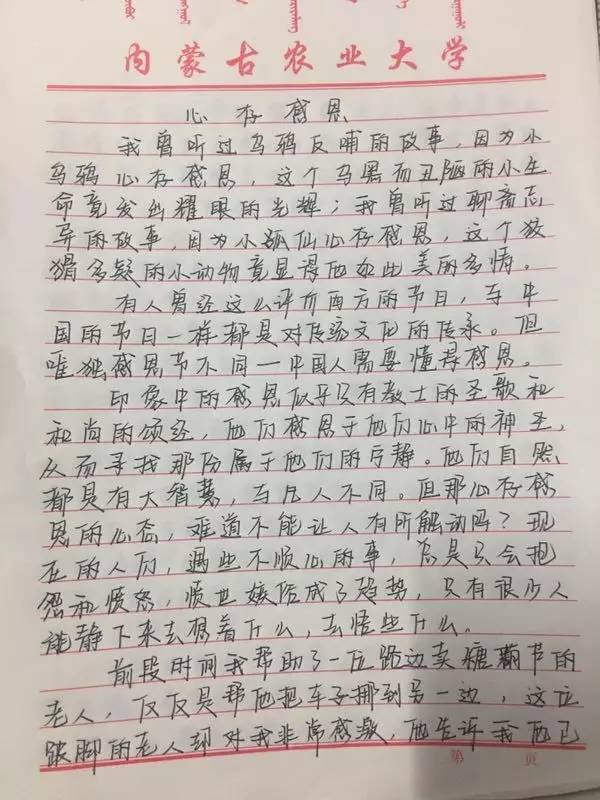 内蒙古农业大学
心存感恩
我曾听过乌鸦反哺的故事，因为小
乌鸦心存感恩，这个乌黑而丑陋的小生
命竟发出耀眼的光辉；我曾听过聊斋志
异的故事，因为小狐仙心存感恩，这个狡
猾多疑的小动物竟显得他如此美的多情。
有人曾经这么评价南方的节日，与中
国的节日一样都是对传统文化的传承。但
唯独感恩节不同一中国人需要懂得感恩。
印象中的感恩似乎只有教士的圣歌和
和尚的颂经，他们感恩于他们心中的神圣，
从而寻找那份属于他们的宁静。他们自然
都是有大智慧，与凡人不同。但那心存感
恩的心态，难道不能让人有所触动吗？现
在的人们，遇些不顺心的事，总是只会抱
怨和愤怒，愤世嫉俗成了趋势，只有很少人
能静下来去想着什么，去悟些什么。
前段时间我帮助了一位路边卖糖葫芦的
老人，仅仅是帮他把车子挪到另一边，这位
跛脚的老人却对我非常感激，他告诉我他已
第 页